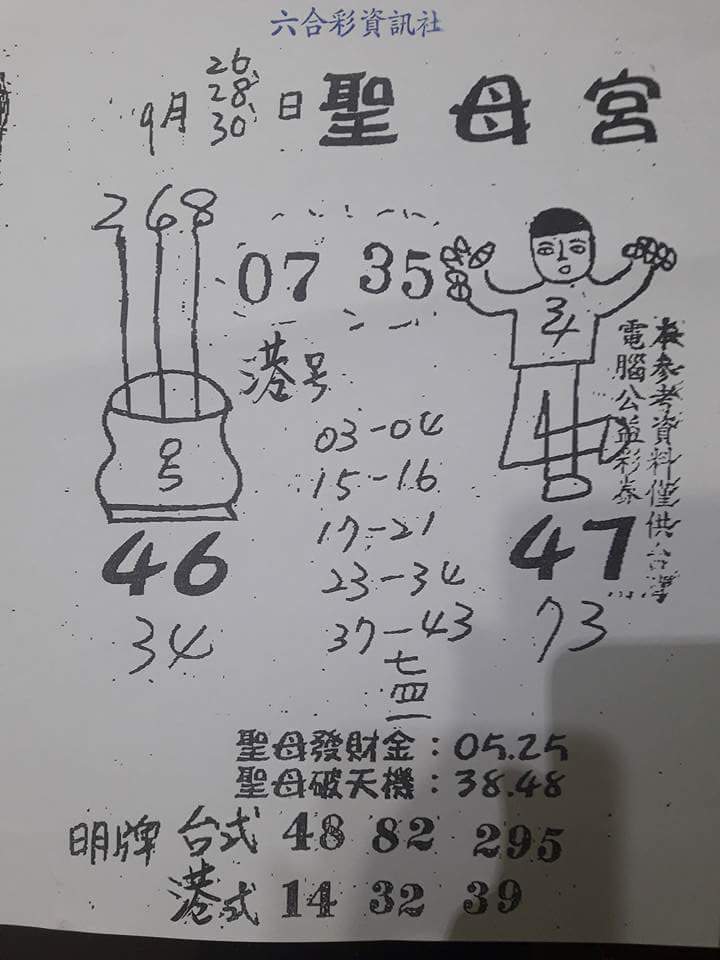 六合彩資訊社
9月 26、28、30 日 聖母宮
268
07 35
34
港号
03-04
15-16
17-21
23-34
37-43
七四一
46
34
47
73
本參考資料僅供台灣
電腦公益彩券
聖母發財金：05.25
聖母破天機：38.48
明牌 台式 48 82 295
港式 14 32 39